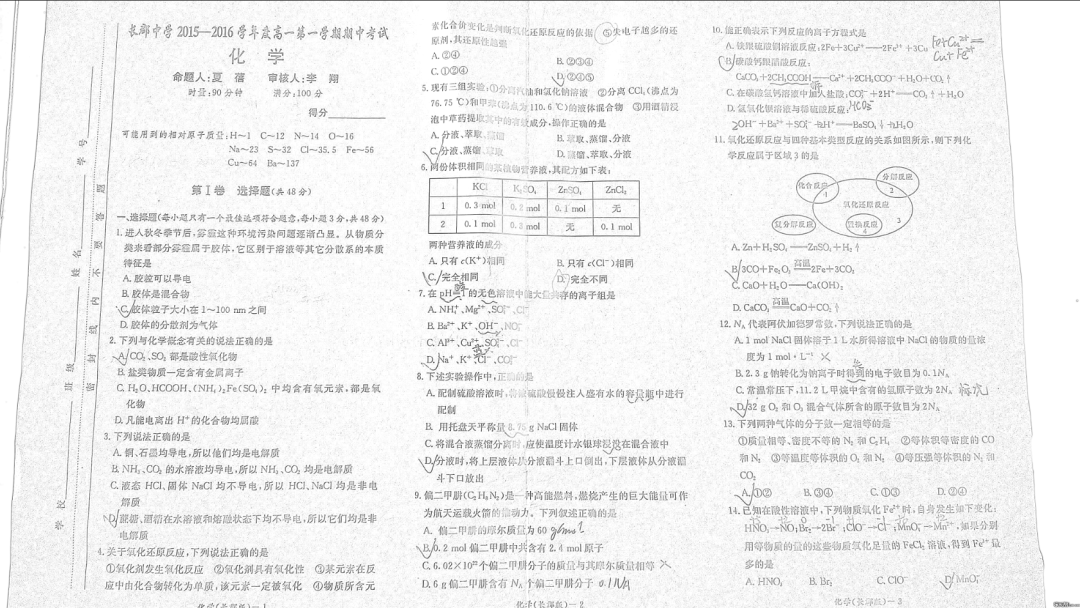 长郡中学2015—2016学年度高一第一学期期中考试
化 学
命题人:夏 蓓 审核人:李 翔
时量:90分钟 满分:100分
得分
可能用到的相对原子质量:H~1 C~12 N~14 O~16
Na~23 S~32 Cl~35.5 Fe~56
Cu~64 Ba~137
第Ⅰ卷 选择题(共48分)
一、选择题(每小题只有一个最佳选项符合题意,每小题3分,共48分)
1.进入秋冬季节后,雾霾这种环境污染问题逐渐凸显。从物质分
类来看部分雾霾属于胶体,它区别于溶液等其它分散系的本质
特征是
A.胶粒可以导电
B.胶体是混合物
C.胶体粒子大小在1~100 nm之间
D.胶体的分散剂为气体
2.下列与化学概念有关的说法正确的是
A.CO₂、SO₂都是酸性氧化物
B.盐类物质一定含有金属离子
C.H₂O、HCOOH、(NH₄)₂Fe(SO₄)₂中均含有氧元素,都是氧
化物
D.凡能电离出H⁺的化合物均属酸
3.下列说法正确的是
A.铜、石墨均导电,所以他们均是电解质
B.NH₃、CO₂的水溶液均导电,所以NH₃、CO₂均是电解质
C.液态HCl、固体NaCl均不导电,所以HCl、NaCl均是非电
解质
D.蔗糖、酒精在水溶液和熔融状态下均不导电,所以它们均是非
电解质
4.关于氧化还原反应,下列说法正确的是
①氧化剂发生氧化反应 ②氧化剂具有氧化性 ③某元素在反
应中由化合物转化为单质,该元素一定被氧化 ④物质所含元
化学(长郡版)—1
学号
姓名
班级
学校
密封线内不要答题
素化合价变化是判断氧化还原反应的依据 ⑤失电子越多的还
原剂,其还原性越强
A.②④
B.②③④
C.①②④
D.②④⑤
5.现有三组实验:①分离汽油和氯化钠溶液 ②分离CCl₄(沸点为
76.75 ℃)和甲苯(沸点为110.6 ℃)的液体混合物 ③用酒精浸
泡中草药提取其中的有效成分,操作正确的是
A.分液、萃取、蒸馏
B.萃取、蒸馏、分液
C.分液、蒸馏、萃取
D.蒸馏、萃取、分液
6.两份体积相同的某植物营养液,其配方如下表:
KCl K₂SO₄ ZnSO₄ ZnCl₂
1 0.3 mol 0.2 mol 0.1 mol 无
2 0.1 mol 0.3 mol 无 0.1 mol
两种营养液的成分
A.只有c(K⁺)相同
B.只有c(Cl⁻)相同
C.完全相同
D.完全不同
7.在pH=1的无色溶液中能大量共存的离子组是
A.NH₄⁺、Mg²⁺、SO₄²⁻、Cl⁻
B.Ba²⁺、K⁺、OH⁻、NO₃⁻
C.Al³⁺、Cu²⁺、SO₄²⁻、Cl⁻
D.Na⁺、K⁺、Cl⁻、CO₃²⁻
8.下述实验操作中,正确的是
A.配制硫酸溶液时,将浓硫酸慢慢注入盛有水的容量瓶中进行
配制
B.用托盘天平称量8.75 g NaCl固体
C.将混合液蒸馏分离时,应使温度计水银球浸没在混合液中
D.分液时,将上层液体从分液漏斗上口倒出,下层液体从分液漏
斗下口放出
9.偏二甲肼(C₂H₈N₂)是一种高能燃料,燃烧产生的巨大能量可作
为航天运载火箭的推动力。下列叙述正确的是
A.偏二甲肼的摩尔质量为60 g/mol
B.0.2 mol偏二甲肼中共含有2.4 mol原子
C.6.02×10²³个偏二甲肼分子的质量与其摩尔质量相等
D.6 g偏二甲肼含有N_A个偏二甲肼分子 0.1NA
化学(长郡版)—2
10.能正确表示下列反应的离子方程式是
A.铁跟硫酸铜溶液反应:2Fe+3Cu²⁺══2Fe³⁺+3Cu Fe+Cu²⁺=
Cu+Fe²⁺
B.碳酸钙跟醋酸反应:
CaCO₃+2CH₃COOH══Ca²⁺+2CH₃COO⁻+H₂O+CO₂↑
C.在碳酸氢钙溶液中加入盐酸:CO₃²⁻+2H⁺══CO₂↑+H₂O
HCO₃⁻
D.氢氧化钡溶液与稀硫酸反应:
2OH⁻+Ba²⁺+SO₄²⁻+2H⁺══BaSO₄↓+2H₂O
11.氧化还原反应与四种基本类型反应的关系如图所示,则下列化
学反应属于区域3的是
化合反应
分解反应
1
2
氧化还原反应
3
复分解反应
置换反应
4
A.Zn+H₂SO₄══ZnSO₄+H₂↑
B.3CO+Fe₂O₃ 高温 2Fe+3CO₂
C.CaO+H₂O══Ca(OH)₂
D.CaCO₃ 高温 CaO+CO₂↑
12.N_A代表阿伏加德罗常数,下列说法正确的是
A.1 mol NaCl固体溶于1 L水所得溶液中NaCl的物质的量浓
度为1 mol·L⁻¹
B.2.3 g钠转化为钠离子时得到的电子数目为0.1N_A
C.常温常压下,11.2 L甲烷中含有的氢原子数为2N_A 标况
D.32 g O₂和O₃混合气体所含的原子数目为2N_A
13.下列两种气体的分子数一定相等的是
①质量相等、密度不等的N₂和C₂H₄ ②等体积等密度的CO
和N₂ ③等温度等体积的O₂和N₂ ④等压强等体积的N₂和
CO₂
A.①② B.③④ C.①③ D.②④
14.已知在酸性溶液中,下列物质氧化Fe²⁺时,自身发生如下变化:
HNO₃→NO;Br₂→2Br⁻;ClO⁻→Cl⁻;MnO₄⁻→Mn²⁺,如果分别
用等物质的量的这些物质氧化足量的FeCl₂溶液,得到Fe³⁺最
多的是
A.HNO₃ B.Br₂ C.ClO⁻ D.MnO₄⁻
化学(长郡版)—3